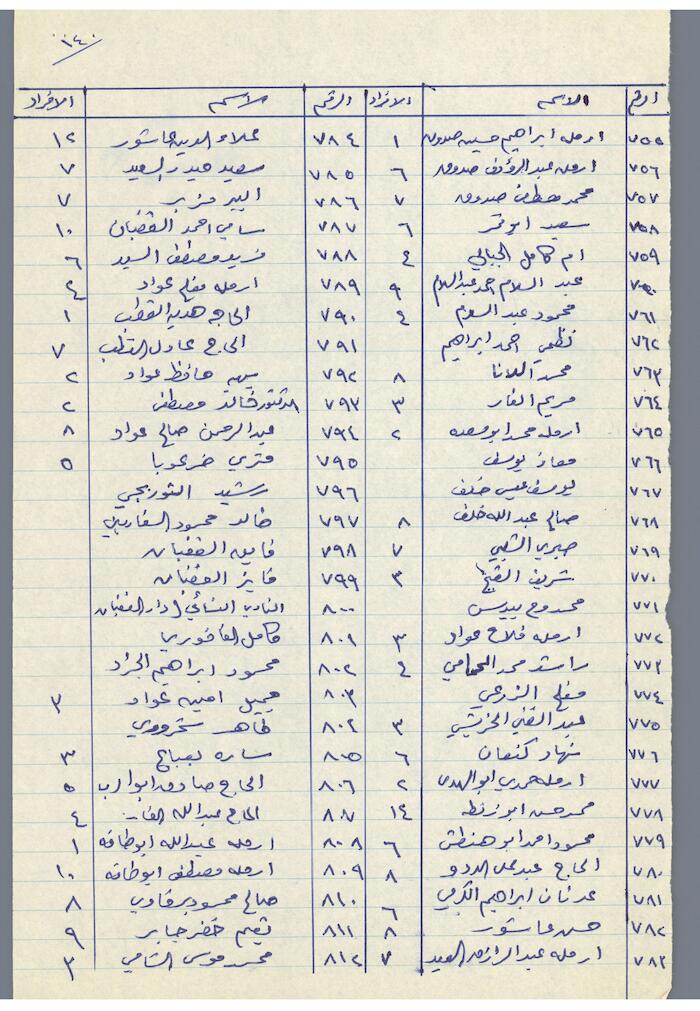 ١٤٠
الرقم الاسم الافراد الرقم الاسم الافراد
٧٥٥ ارمله ابراهيم حسين صدوق ١ ٧٨٤ علاء الدين عاشور ١٢
٧٥٦ ارمله عبد الرؤوف صدوق ٦ ٧٨٥ سعيد حيدر السعيد ٧
٧٥٧ محمد مصطفى صدوق ٧ ٧٨٦ البير مزبر ٧
٧٥٨ سعيد ابو قمر ٦ ٧٨٧ سامي احمد الغضبان ١٠
٧٥٩ ام كامل الجبالي ٤ ٧٨٨ فريد مصطفى السيد ٦
٧٦٠ عبد السلام احمد عبد السلام ٩ ٧٨٩ ارمله مفلح عواد ٤
٧٦١ محمود عبد السلام ٤ ٧٩٠ الحاج هديه القطب ١
٧٦٢ نظمي احمد ابراهيم ٧٩١ الحاج عادل القطب ٧
٧٦٣ محمد اللانا ٨ ٧٩٢ حافظ عواد ٢
٧٦٤ مريم الفار ٣ ٧٩٣ الدكتور خالد مصطفى ٢
٧٦٥ ارمله محمد ابو سعده ٢ ٧٩٤ عبد الرحمن صالح عواد ٨
٧٦٦ معاذ يوسف ٧٩٥ فتري ضرغوبا ٥
٧٦٧ يوسف عيسى خلف ٧٩٦ رشيد التوربجي
٧٦٨ صالح عبد الله خلف ٨ ٧٩٧ خالد محمود السفاريني
٧٦٩ صبري الشلبي ٧ ٧٩٨ فايق الغضبان
٧٧٠ شريف الشيخ ٣ ٧٩٩ فايز الغضبان
٧٧١ ممدوح بيدس ٨٠٠ النادي النسائي / دار الغضبان
٧٧٢ ارمله فلاح عواد ٣ ٨٠١ كامل الفاخوري
٧٧٣ راشد محمد المحامي ٤ ٨٠٢ محمود ابراهيم الجراد
٧٧٤ مفلح الزرعي ٨٠٣ جميل امين عواد ٣
٧٧٥ عبد الغني الخريشي ٣ ٨٠٤ طاهر سختروري
٧٧٦ نهاد كنعان ٦ ٨٠٥ ساره بعباع ٣
٧٧٧ ارمله حمدي ابو الهدى ٢ ٨٠٦ الحاج صادق ابو الرب ٥
٧٧٨ محمد حسن ابو زنطه ١٤ ٨٠٧ الحاج عبد الله الفار ٤
٧٧٩ محمود احمد ابو هنطش ٦ ٨٠٨ ارمله عبد الله ابو طاقه ١
٧٨٠ الحاج عبد علي الددو ٨ ٨٠٩ ارمله مصطفى ابو طاقه ١٠
٧٨١ عدنان ابراهيم الكرمي ٦ ٨١٠ صالح محمود برقاوي ٨
٧٨٢ حسن عاشور ٨ ٨١١ نعيم خضر جابر ٩
٧٨٣ ارمله عبد الرازق العبد ٧ ٨١٢ محمد موسى الشامي ٣